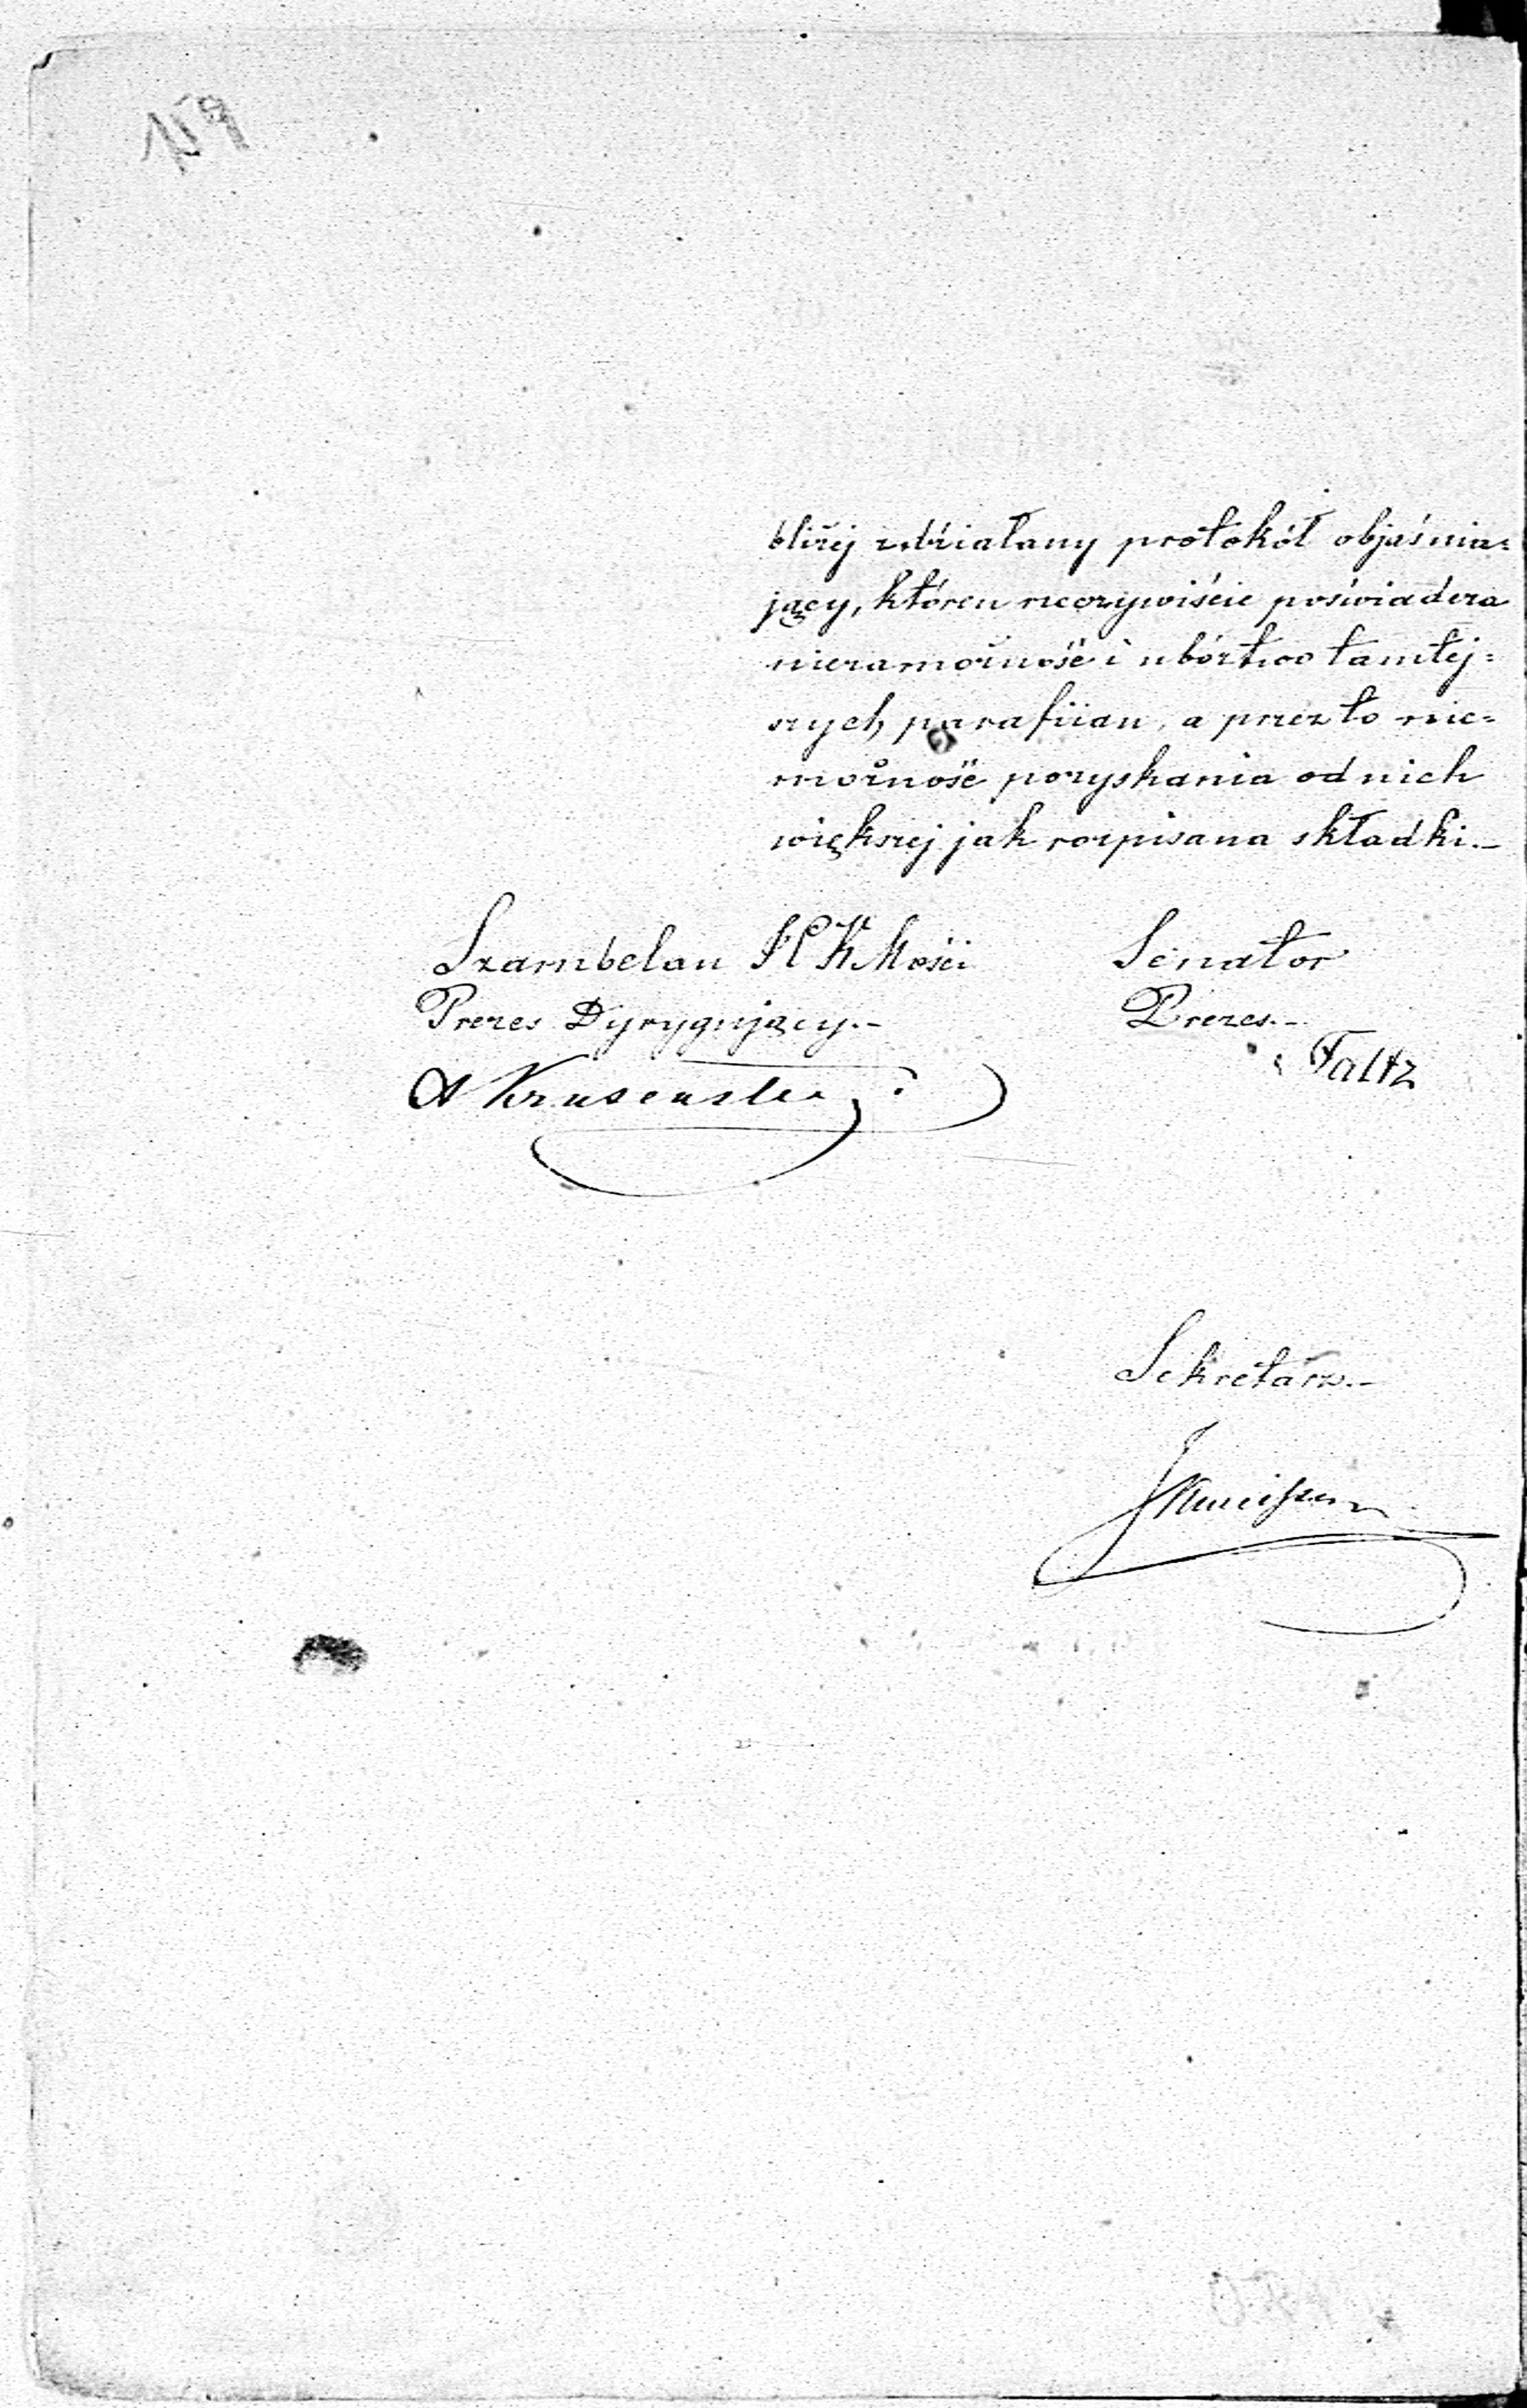 bliżej zdziałany protokół objaśnia=
jący, któren rzeczywiście poświadcza
niezamożność i ubóstwo tamtej=
szych parafiian, a przez to nie=
możność pozyskania od nich
większej jak rozpisana składki.–
Szambelan JCKMości Senator
Prezes Dyrygujący.– Prezes.–
Faltz
A Krusenster
Sekretarz.–